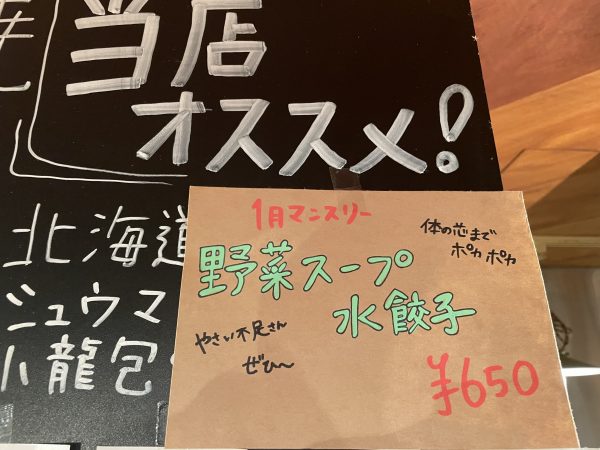 当店
オススメ!
北海道
ジュウマ
小龍包
1月マンスリー
体の芯まで
ポカポカ
野菜スープ
水餃子
やさい不足さん
ぜひ〜
¥650